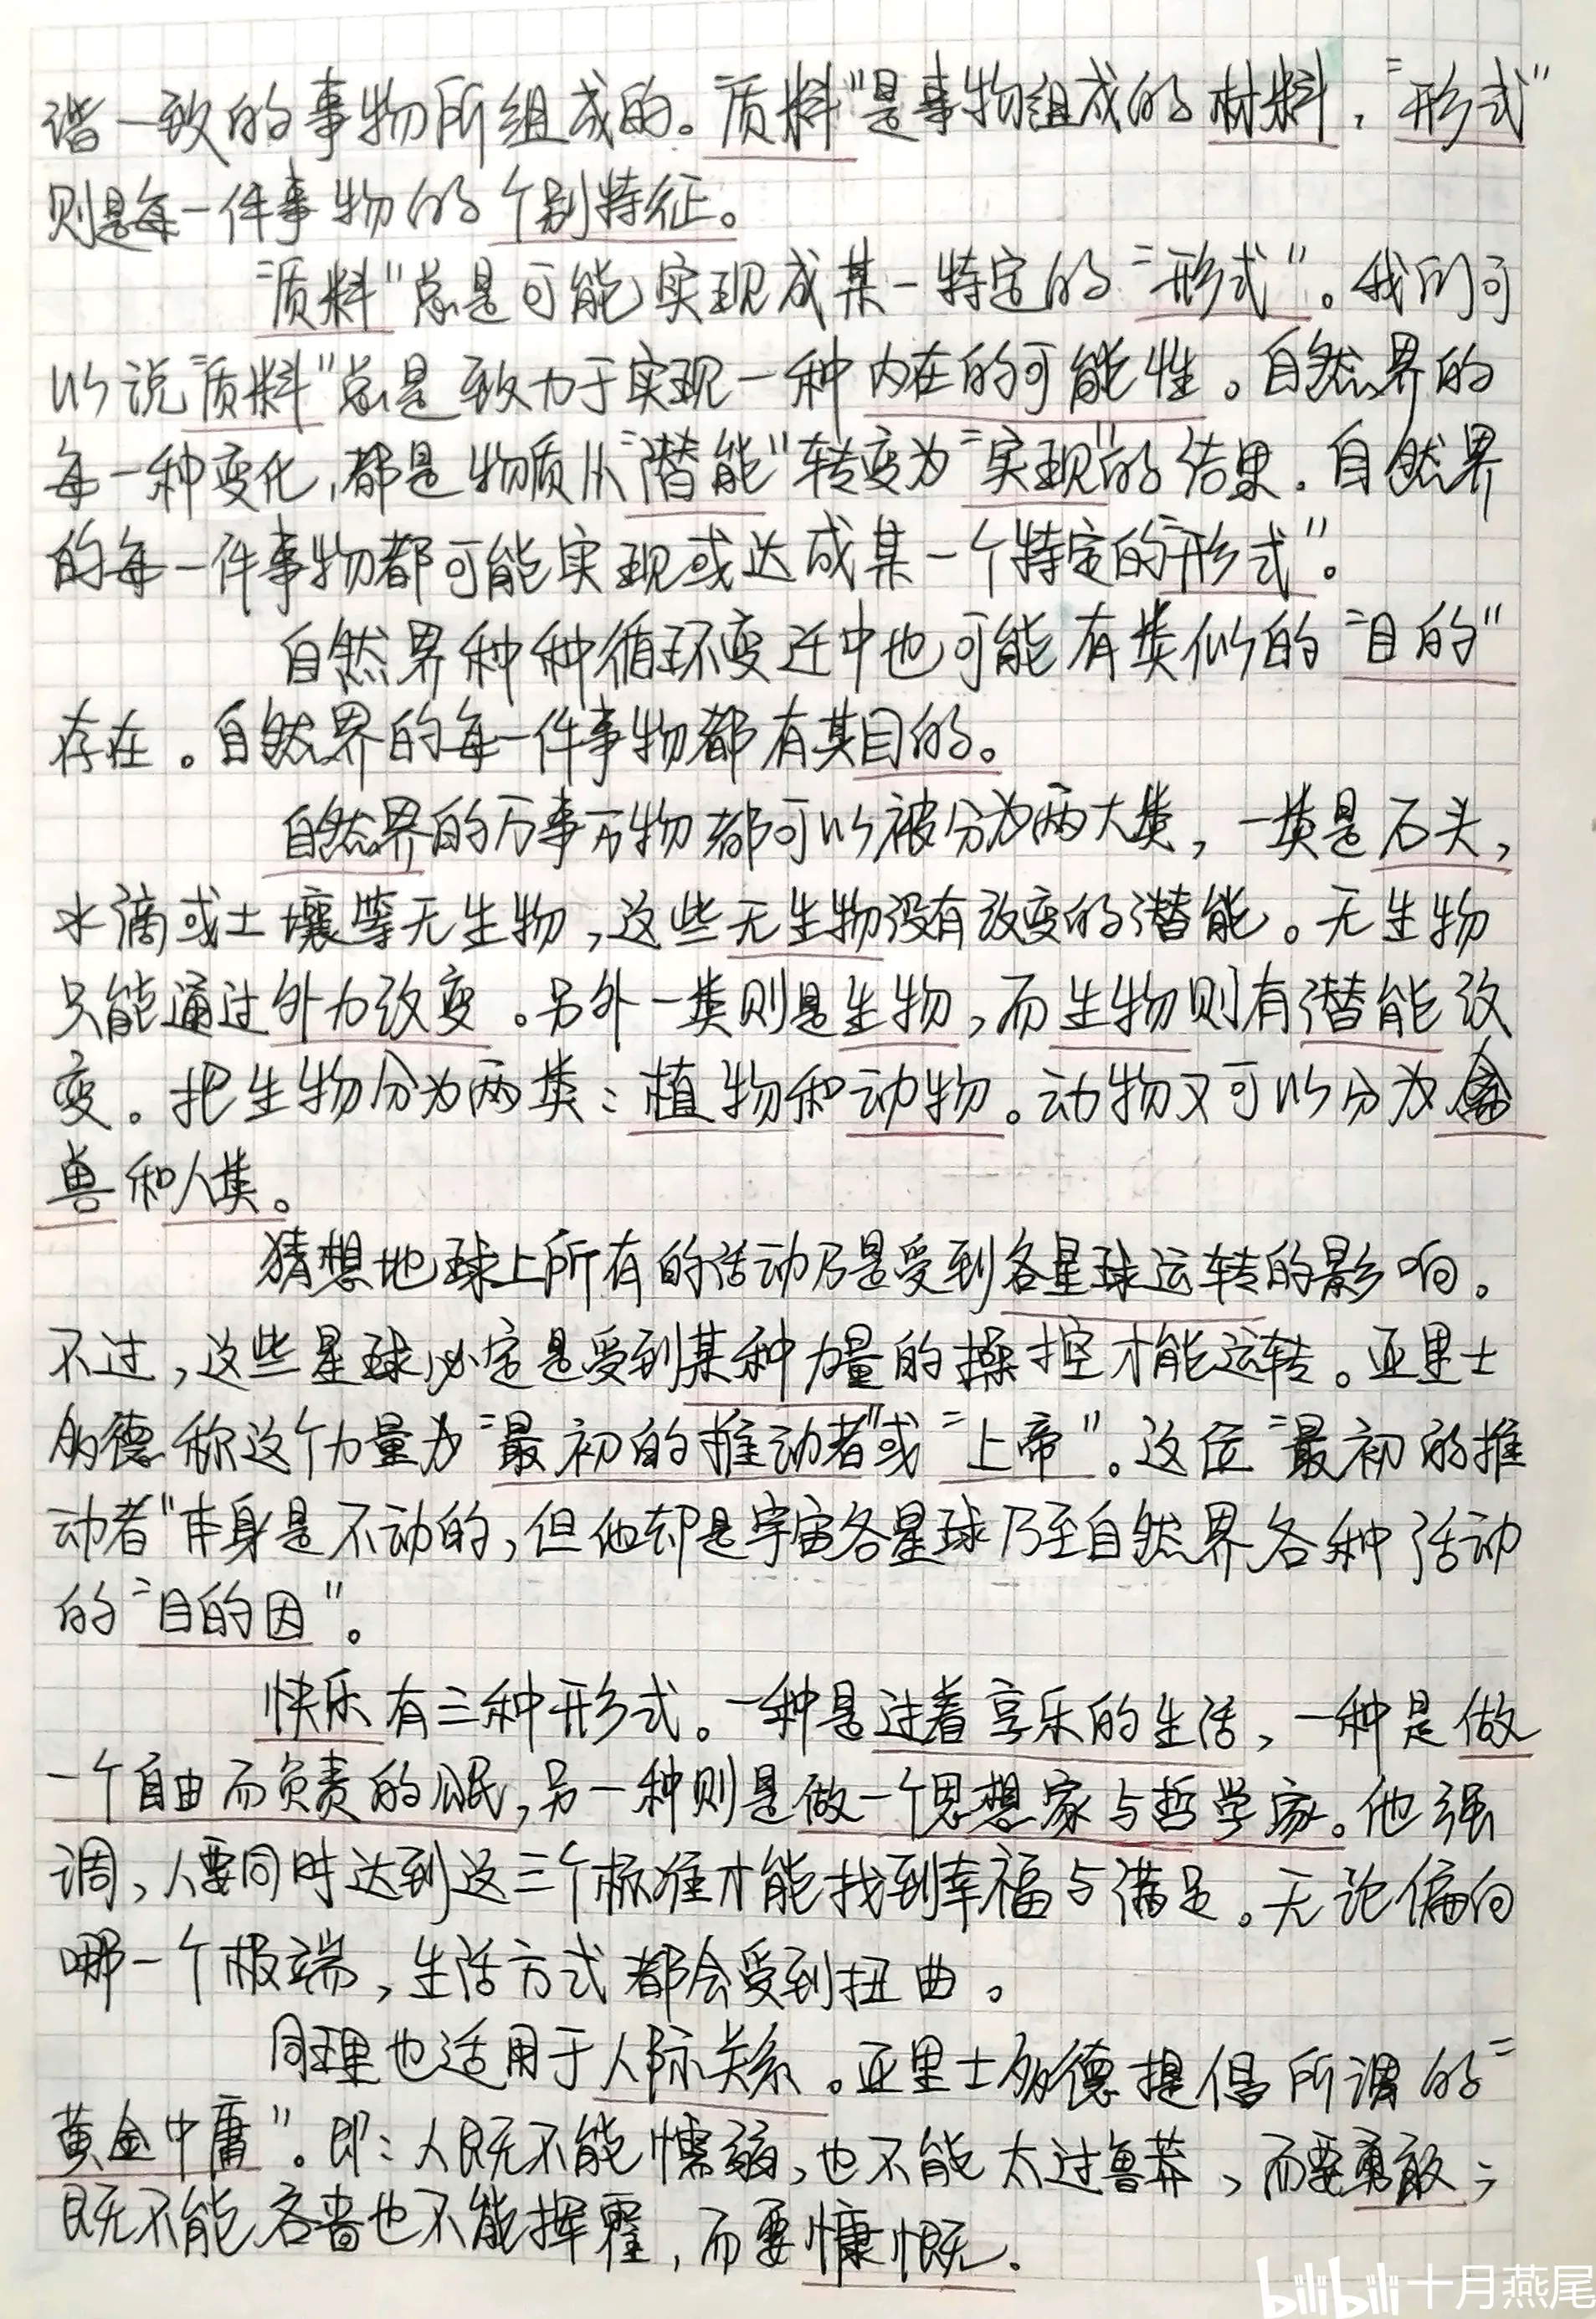 谐一致的事物所组成的。"质料"是事物组成的材料,"形式"
则是每一件事物的个别特征。
"质料"总是可能实现成某一特定的"形式"。我们可
以说"质料"总是致力于实现一种内在的可能性。自然界的
每一种变化,都是物质从"潜能"转变为"实现"的结果.自然界
的每一件事物都可能实现或达成某一个特定的"形式"。
自然界种种循环变迁中也可能有类似的"目的"
存在。自然界的每一件事物都有其目的。
自然界的万事万物都可以被分为两大类,一类是石头,
水滴或土壤等无生物,这些无生物没有改变的潜能。无生物
只能通过外力改变。另外一类则是生物,而生物则有潜能改
变。把生物分为两类:植物和动物。动物又可以分为禽
兽和人类。
猜想地球上所有的活动乃是受到各星球运转的影响。
不过,这些星球必定是受到某种力量的操控才能运转。亚里士
多德称这个力量为"最初的推动者"或"上帝"。这位"最初的推
动者"本身是不动的,但他却是宇宙各星球乃至自然界各种活动
的"目的因"。
快乐有三种形式。一种是过着享乐的生活,一种是做
一个自由而负责的公民,另一种则是做一个思想家与哲学家。他强
调,人要同时达到这三个标准才能找到幸福与满足。无论偏向
哪一个极端,生活方式都会受到扭曲。
同理也适用于人际关系。亚里士多德提倡所谓的"
黄金中庸"。即:人既不能懦弱,也不能太过鲁莽,而要勇敢;
既不能吝啬也不能挥霍,而要慷慨.
bilibili 十月燕尾